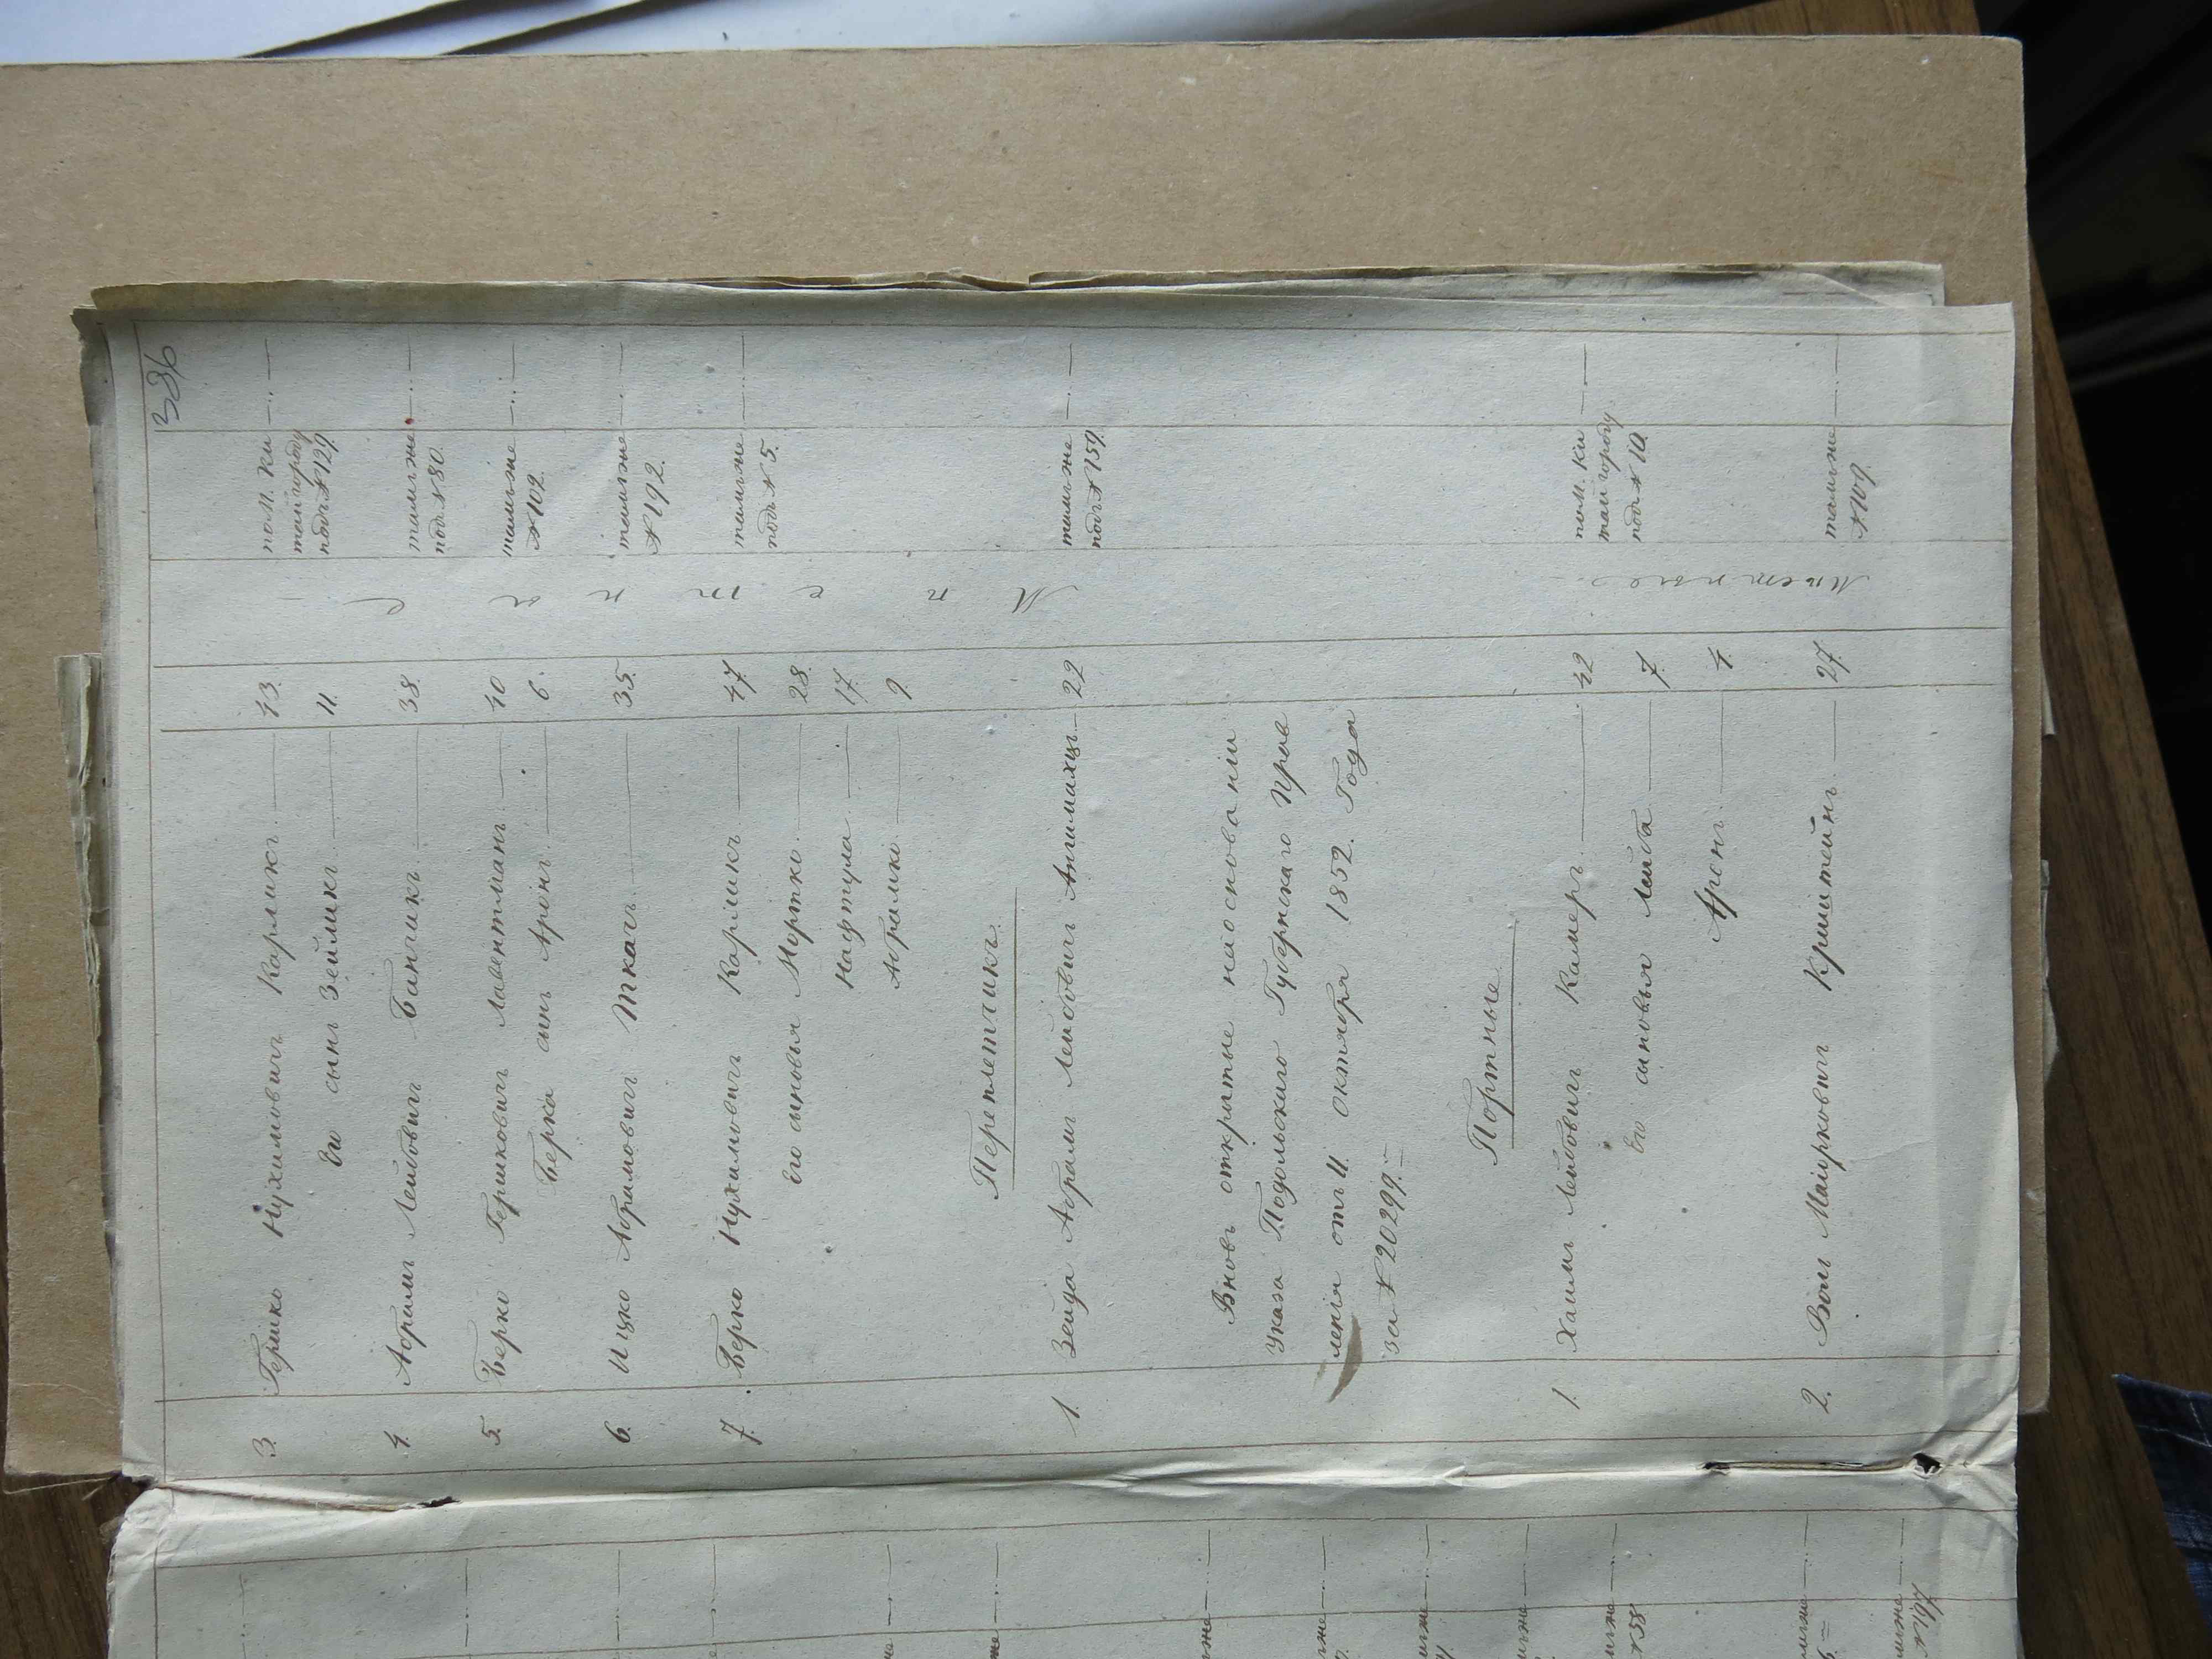 386
3. Гершко Нухимовичъ Карликъ 43. пом. Ки
тай городу
подъ № 129.
Его сынъ Зейликъ 11.
4. Абрамъ Лейбовичъ Банчикъ 38. тамъ же
под. № 80.
5. Берко Гершковичъ Лавентманъ 40 тамъ же
№ 102.
Берка сынъ Аронъ 6.
6. Ицко Абрамовичъ Ткачъ 35. тамъ же
№ 192.
7. Берко Нухимовичъ Карликъ 47 тамъ же
подъ № 5.
Его сыновья Мортко 28.
Нафтула 17.
Абрамко 9
Переплетчикъ.
1. Зейда Абрамъ Лейбовичъ 22 тамъ же
подъ № 159.
Вновь открытые на основании
Указа Подольскаго Губернскаго Прав
ленія отъ 11. октября 1852. Года
за № 20299.
Портные
1. Хаимъ Лейбовичъ Камеръ 42 пом. Ки
тай городу
подъ № 10.
Его сыновья Лейба 7.
Аронъ 4.
2. Волъ Маіорковичъ Криштейнъ 27. тамъ же
№ 109.
Местные
№ 58
№ 197